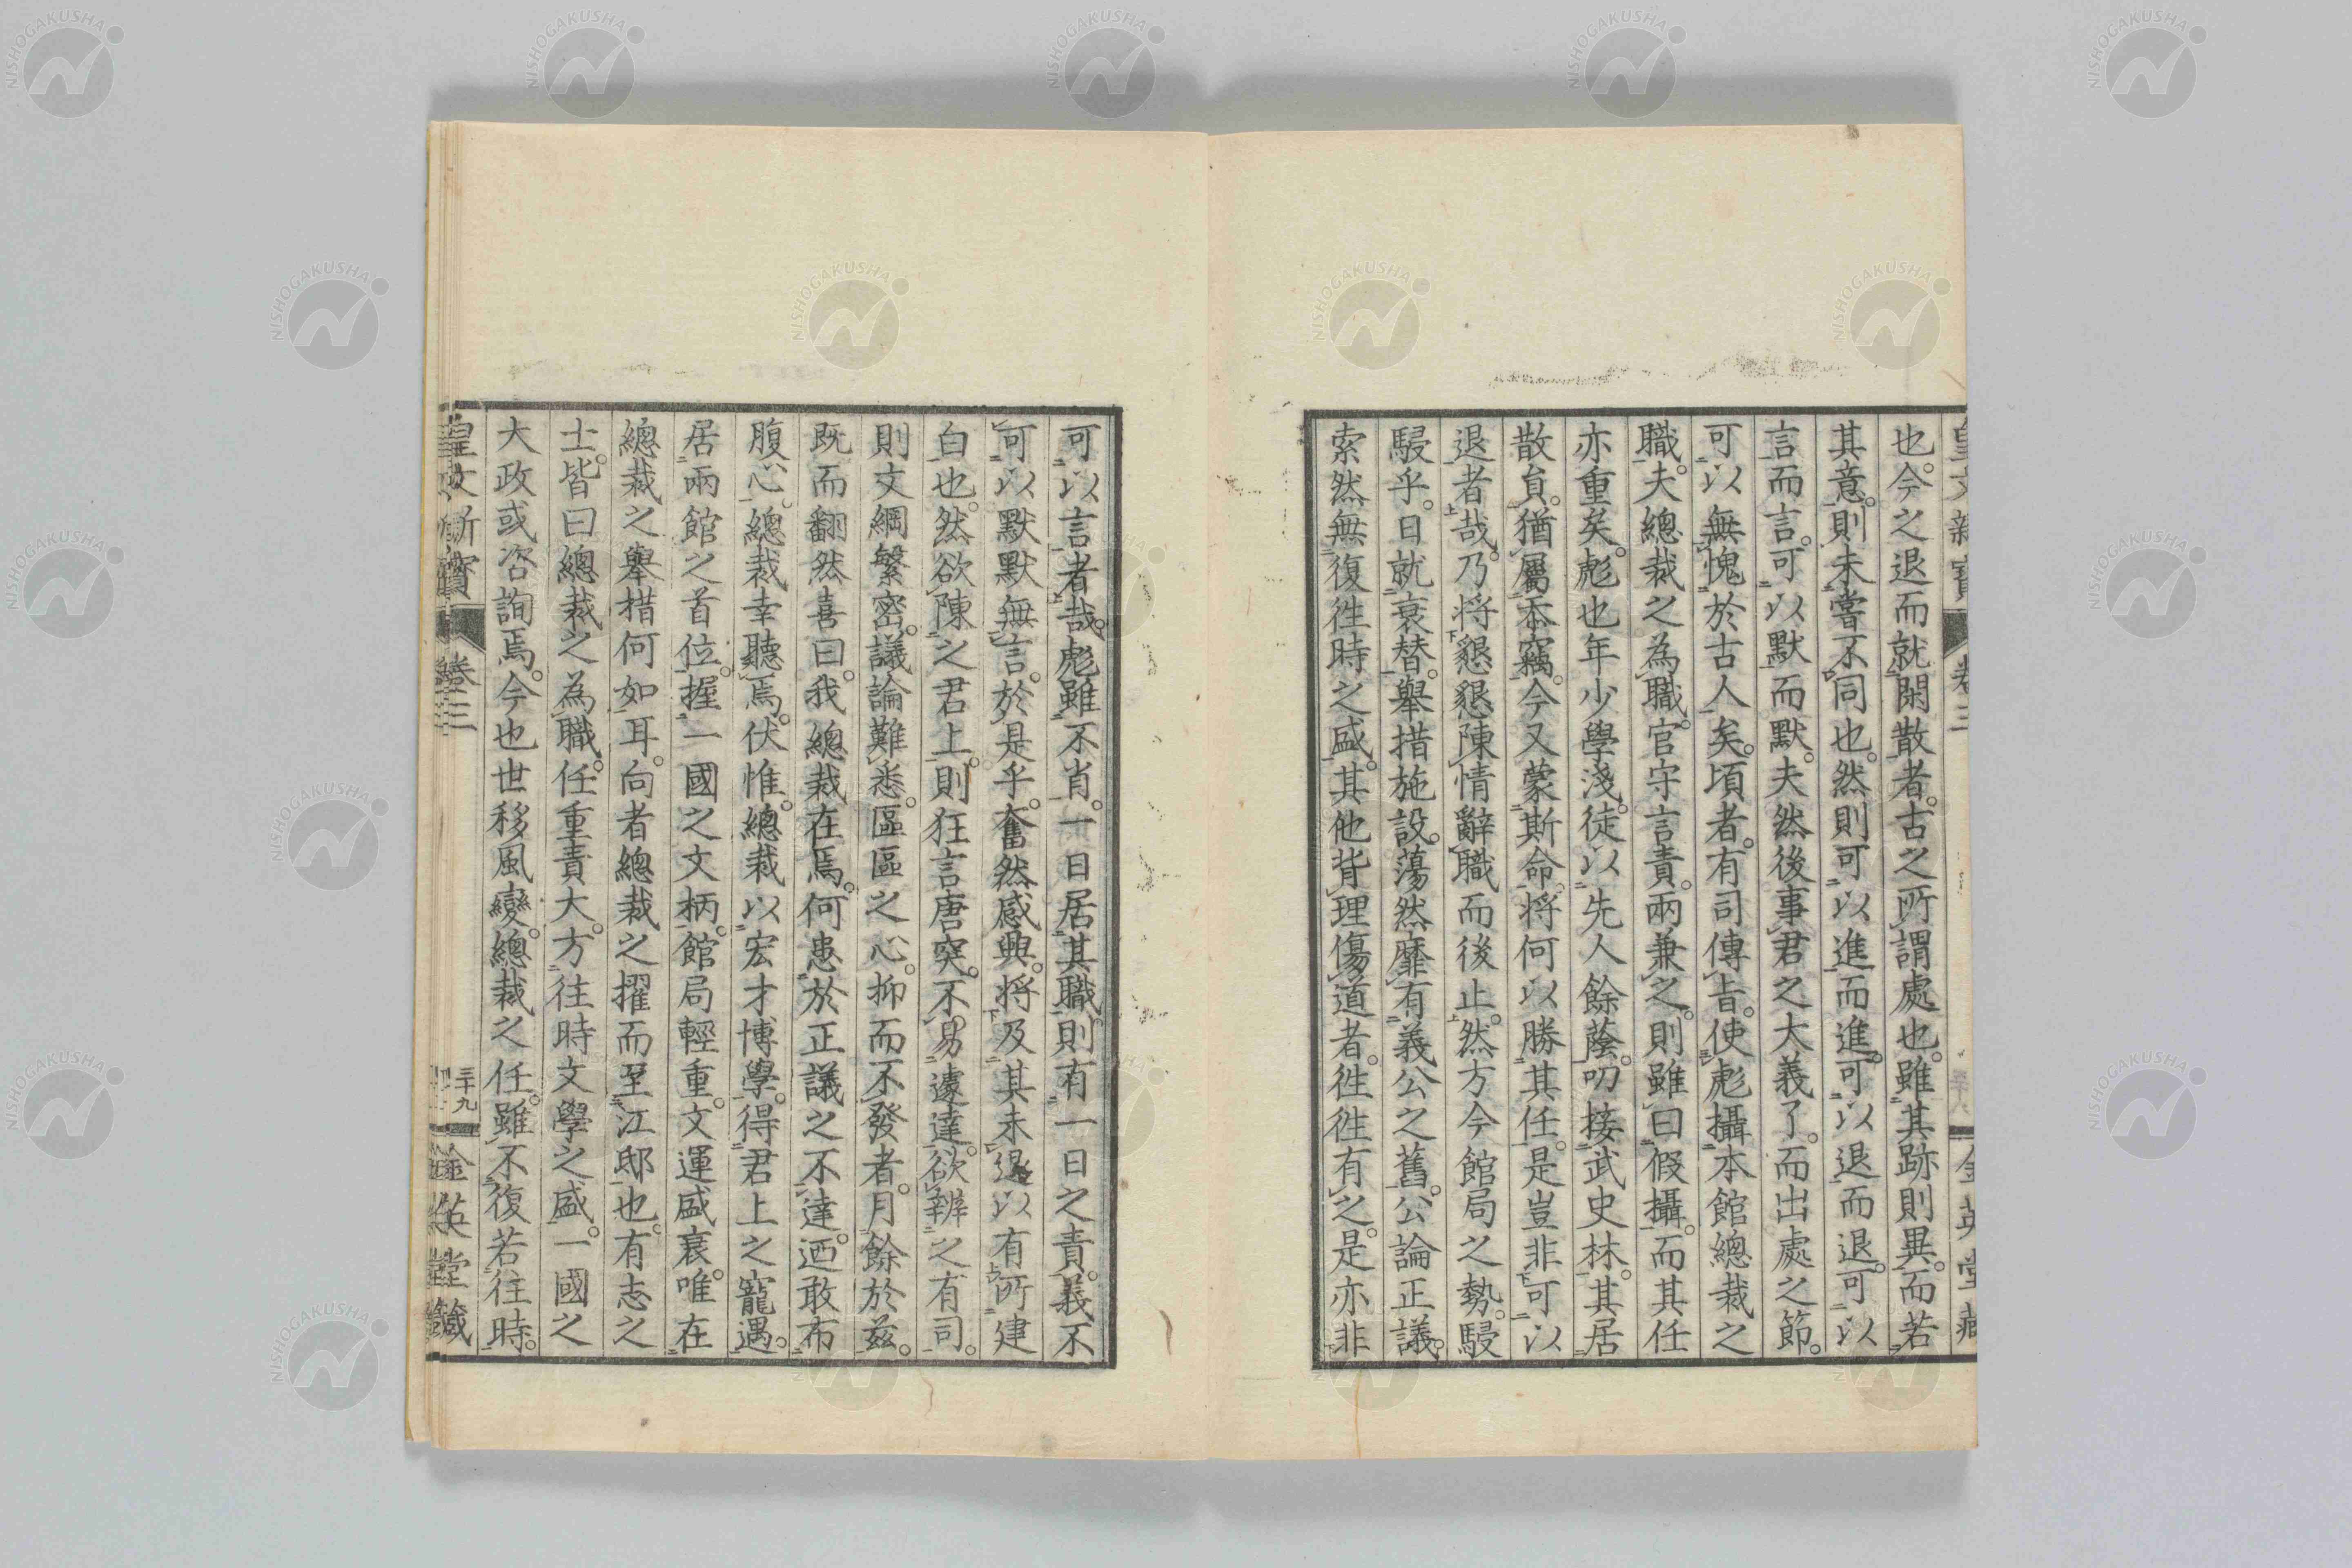 皇文新寶 卷三 金英堂藏
也。今之退而就閑散者。古之所謂處也。雖其跡則異。而若
其意。則未嘗不同也。然則可以進而進。可以退而退。可以
言而言。可以默而默。夫然後事君之大義了。而出處之節。
可以無愧於古人矣。頃者。有司傳旨。使彪攝本館總裁之
職。夫總裁之為職。官守言責。兩兼之。則雖曰假攝。而其任
亦重矣。彪也年少學淺。徒以先人餘蔭。叨接武史林。其居
散員。猶屬忝竊。今又蒙斯命。将何以勝其任。是豈非可以
退者哉。乃将懇懇陳情辭職而後止。然方今館局之勢。駸
駸乎。日就衰替。舉措施設。蕩然靡有義公之舊。公論正議。
索然無復徃時之盛。其他背理傷道者。徃徃有之。是亦非
可以言者哉。彪雖不肖。一日居其職。則有一日之責。義不
可以默默無言。於是乎。奮然感興。将及其未退以有所建
白也。然欲陳之君上。則狂言唐突。不易遽達。欲辨之有司。
則文綱繁密。議論難悉。區區之心。抑而不發者。月餘於茲。
既而翻然喜曰。我總裁在焉。何患於正議之不達。迺敢布
腹心。總裁幸聽焉。伏惟。總裁以宏才博學。得君上之寵遇。
居兩館之首位。握一國之文柄。館局輕重。文運盛衰。唯在
總裁之舉措何如耳。向者總裁之擢而至江邸也。有志之
士。皆曰總裁之為職。任重責大。方往時文學之盛。一國之
大政或咨詢焉。今也世移風變。總裁之任。雖不復若往時。
皇文新寶 卷三 三十九 金英堂藏
NISHOGAKUSHA